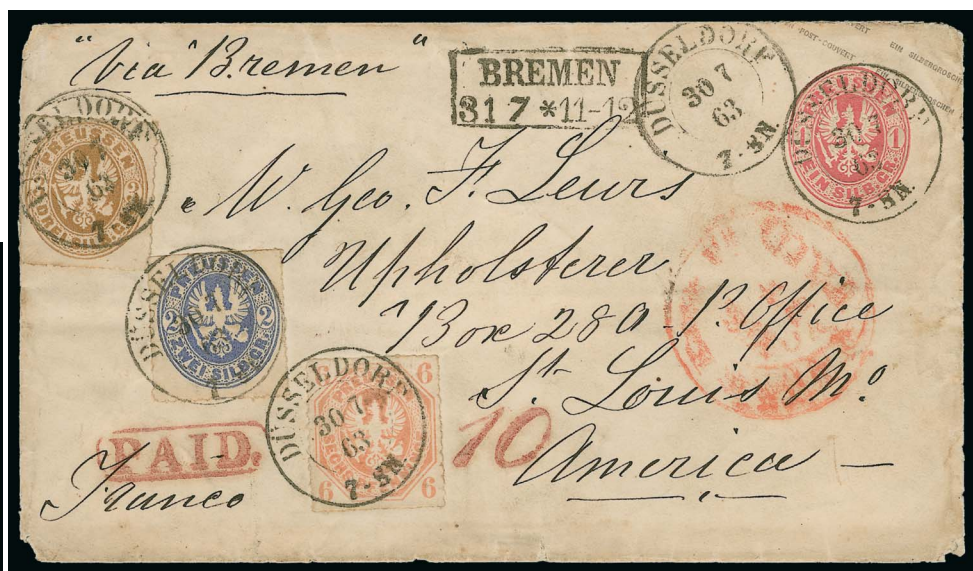 "Via Bremen"
BREMEN
31 7 * 11-12
DÜSSELDORF
30 7
63
7-8N.
POST-COUVERT EIN SILBERGROSCHEN
DÜSSELDORF
30
63
7-8N.
1
EIN SILB.GR.
DÜSSELDORF
63
7
PREUSSEN
3
DREI SILB.GR.
W. Geo. F. Leurs
Upholsterer
Box 289 P. Office
St. Louis Mo
America —
DÜSSELDORF
7
PREUSSEN
2 2
ZWEI SILB.GR.
DÜSSELDORF
30 7
63
7-8N.
6
6 6
10
PAID.
Franco